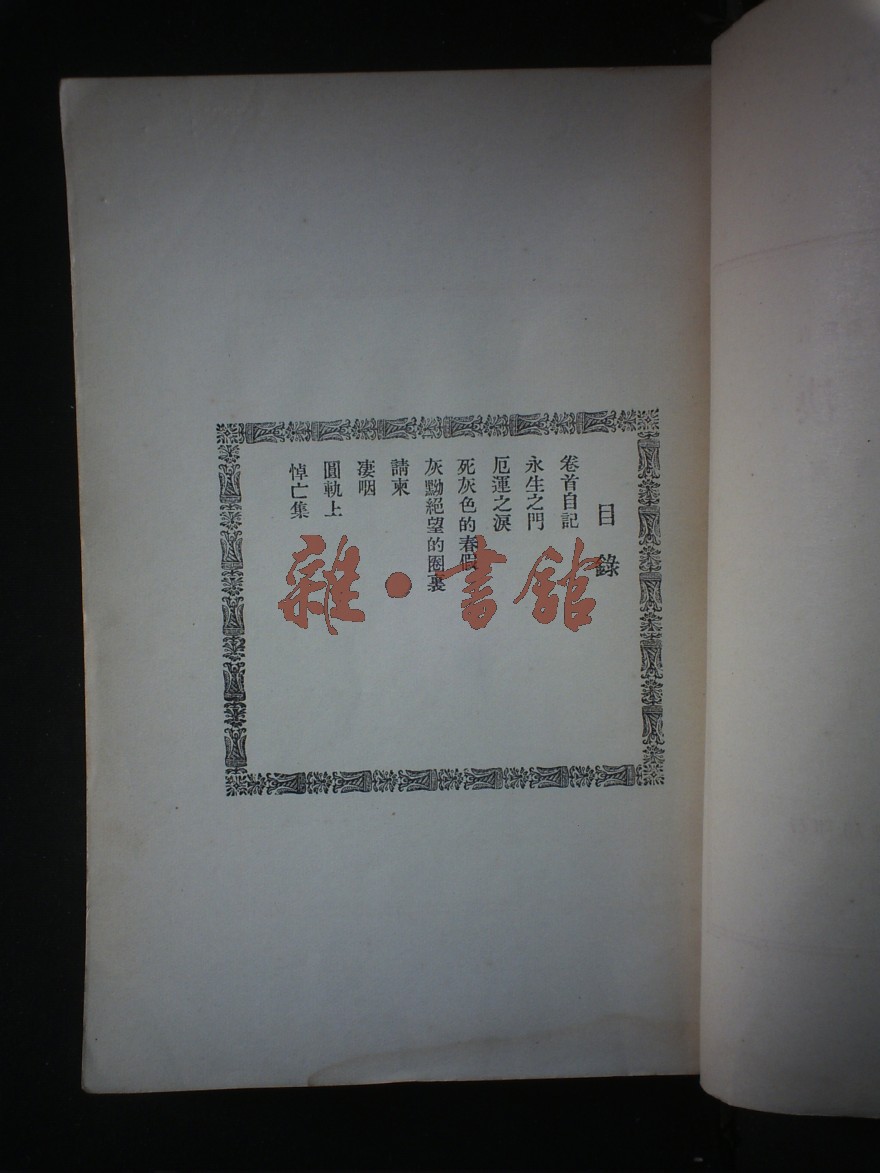 目錄
卷首自記
永生之門
厄運之淚
死灰色的春假
灰黝絕望的圈裏
請柬
凄咽
圓軌上
悼亡集
雜·書館